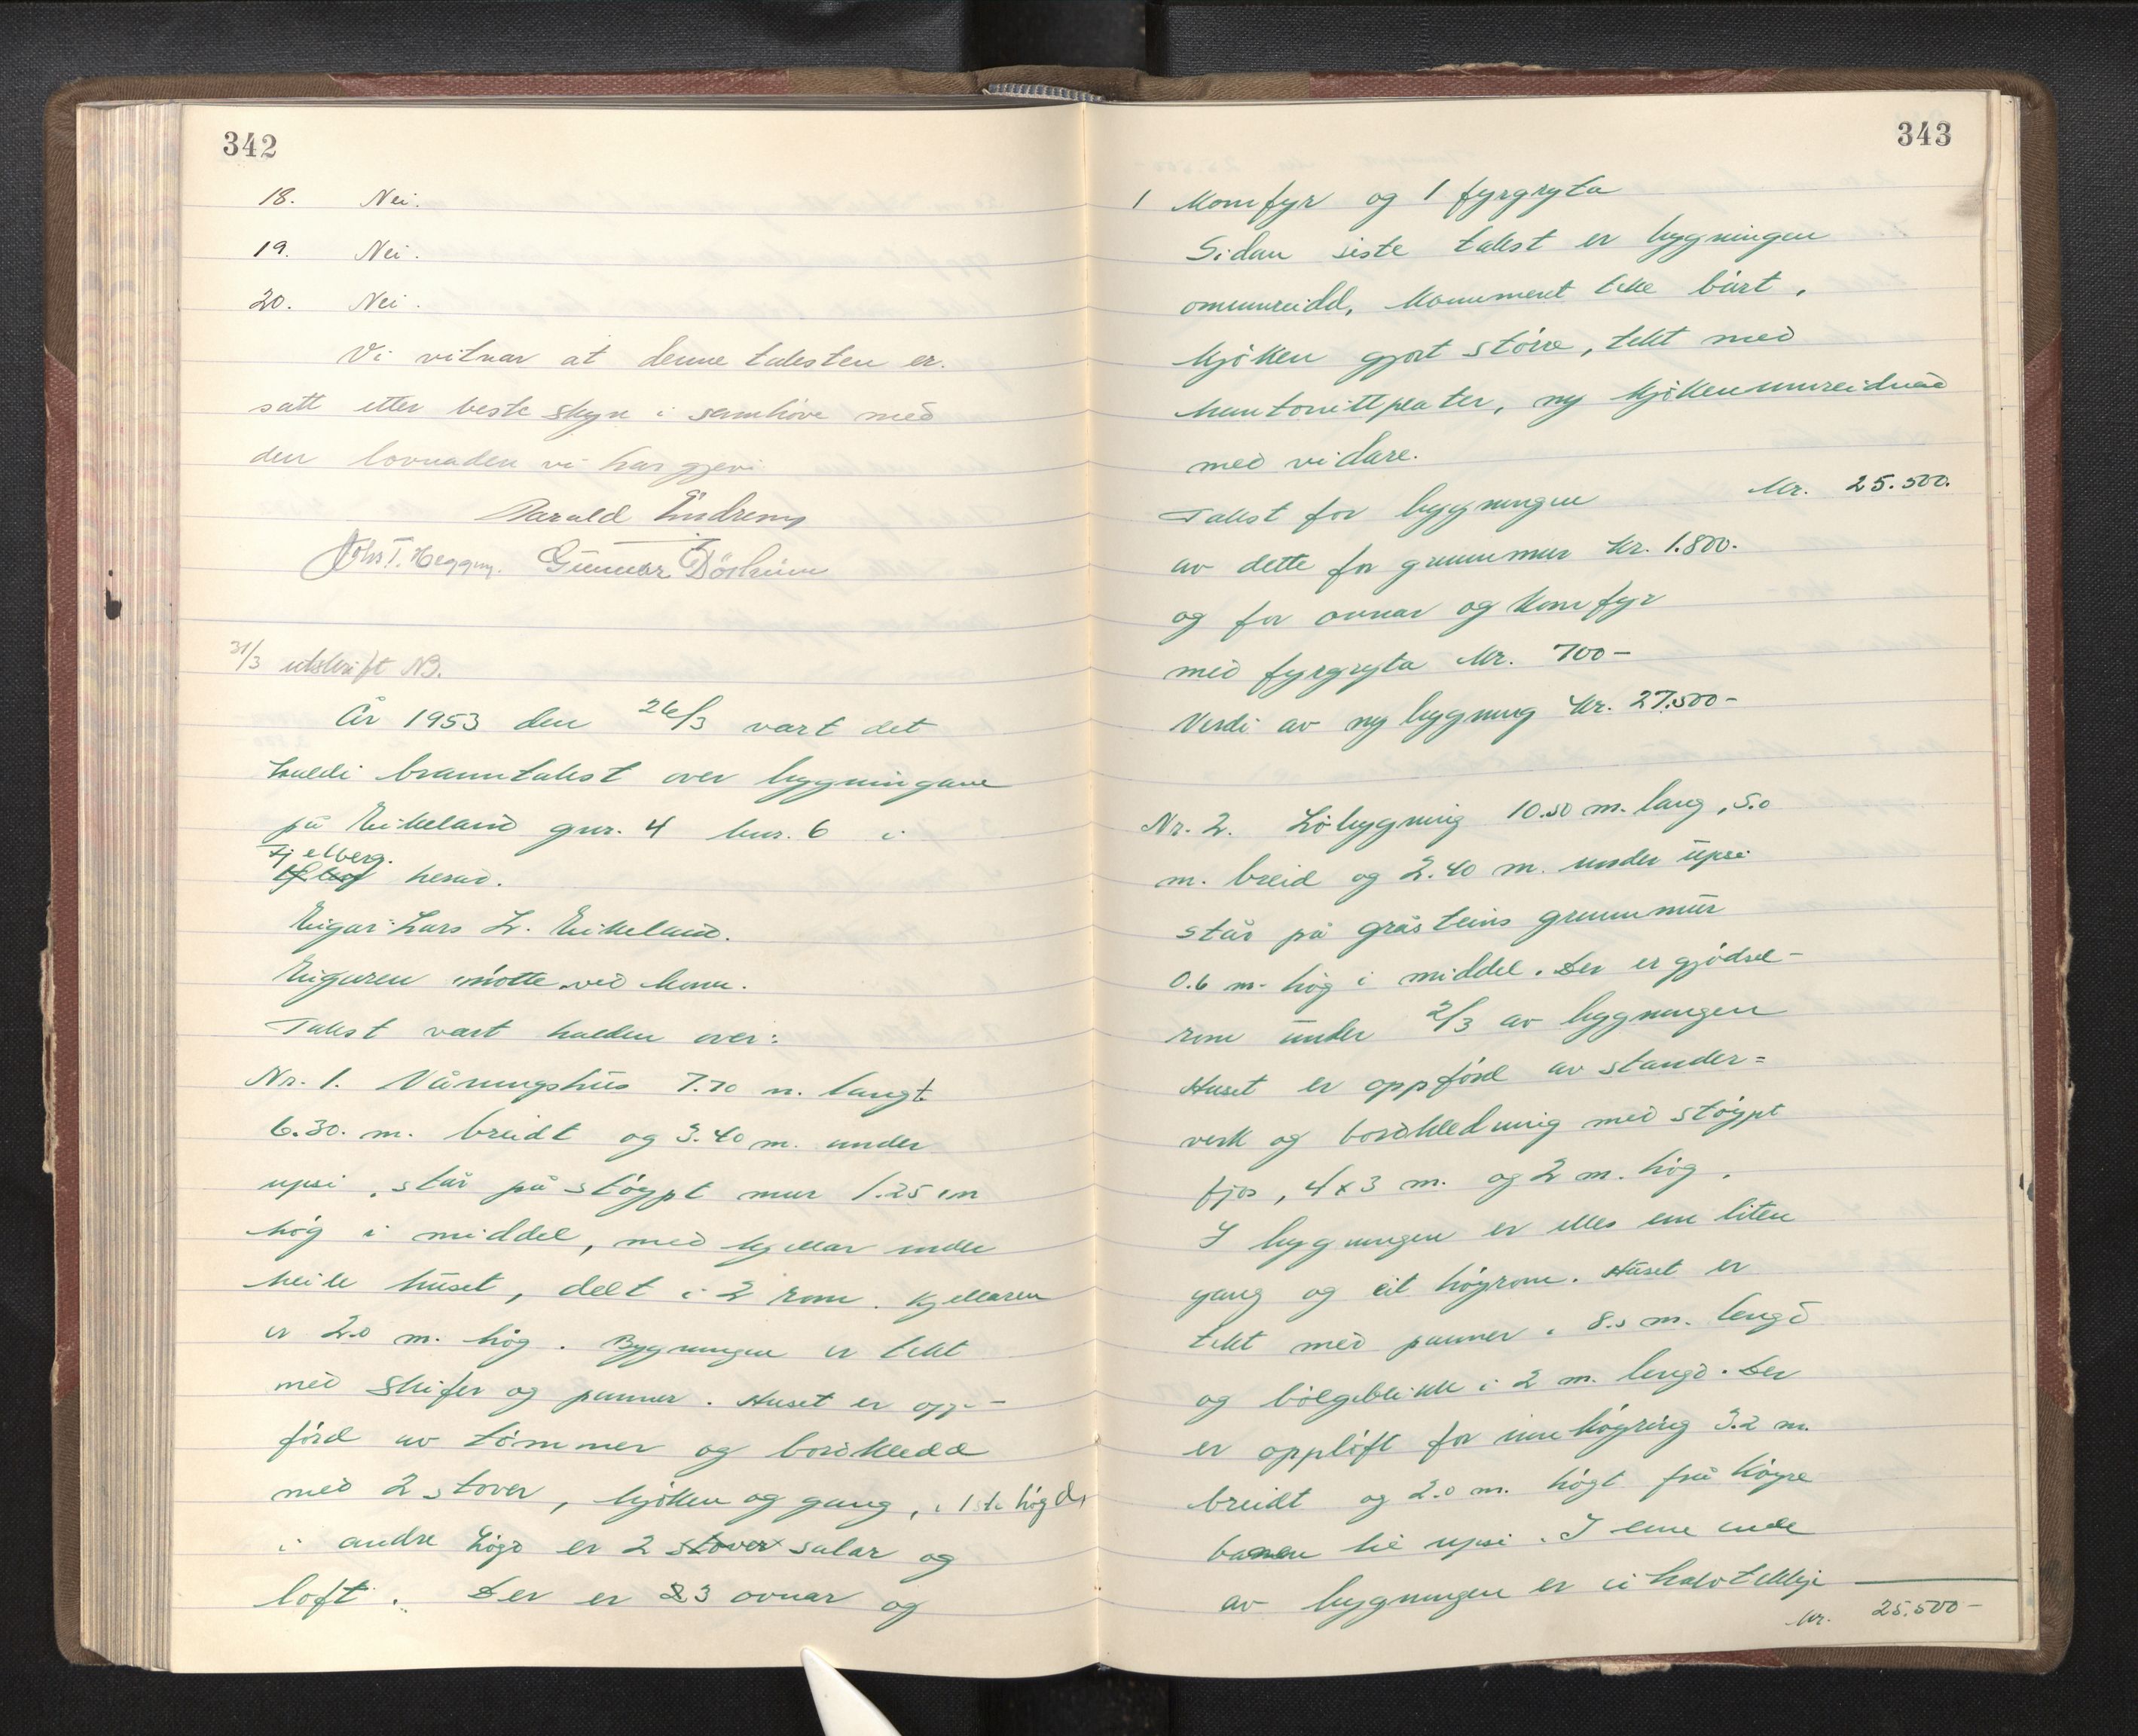 342
18. Nei.
19. Nei.
20. Nei.
Vi vitnar at denne taksten er
satt etter beste skyn i samhöve med
den lovnaden vi har gjevi
Harald Endresen
Johs T. Heggen. Gunnar
31/3 utskrift NB.
År 1953 den 26/3 vart det
haldi branntakst over bygningane
på Eikeland gnr. 4 bnr. 6 i
Fjelberg.
herad.
Eigar: Lars L. Eikeland.
Eigaren møtte ved konn.
Takst vart halden over:
Nr. 1. Våningshus 7.70 m. langt
6.30. m. breidt og 3.40 m. under
upsi, står på støypt mur 1.25 m
høg i middel, med kjellar under
heile huset, delt i 2 rom. Kjellaren
er 2.0 m. høg. Bygningen er tekt
med skifer og panner. Huset er opp-
førd av tømmer og bordkledd
med 2 stover, kjøken og gang, i 1ste høgd,
i andre høgd er 2 stover salar og
loft. Der er 3 ovnar og
343
1 komfyr og 1 fyrgryta
Sidan siste takst er bygningen
ominnreidd, kammeret teke bårt,
kjøken gjort større, tekt med
huntonittplater, ny kjøkeninnreidnad
med vidare.
Takst for bygningen Kr. 25.500.
av dette for grunnmur kr. 1.800.
og for ovnar og komfyr
med fyrgryta kr. 700-
Verdi av ny bygning kr. 27.500-
Nr. 2. Løbygning 10.50 m. lang, 5.0
m. breid og 2.40 m. under upsi
står på gråsteins grunnmur
0.6 m. høg i middel. Der er gjødsel-
rom under 2/3 av bygningen
Huset er oppførd av stander=
verk og bordkledning med støypt
fjos, 4x3 m. og 2 m. høg.
I bygningen er elles en liten
gang og eit høyrom. Huset er
tekt med panner i 8.5 m. lengd
og bølgeblikk i 2 m. lengd. Der
er oppløft for innhøyring 3.2 m.
breidt og 2.0 m. høgt frå høyre
banen til upsi. I ene ende
av bygningen er ei halvtekkje
Kr. 25.500-